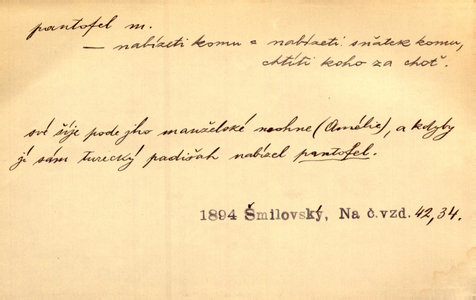 pantofel m.
— nabízeti komu = nabízeti sňatek komu,
chtíti koho za choť.
své šíje pode jho manželské neohne (Amélie), a kdyby
jí sám turecký padišah nabízel pantofel.
1894 Šmilovský, Na č.vzd. 42,34.